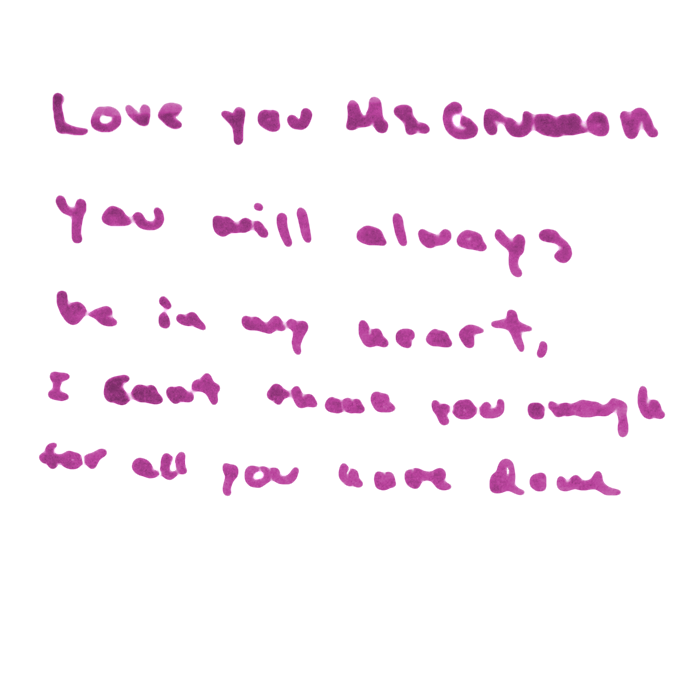 Love you Ms.
you will always
be in my heart,
I Cant thank you enough
for all you have done